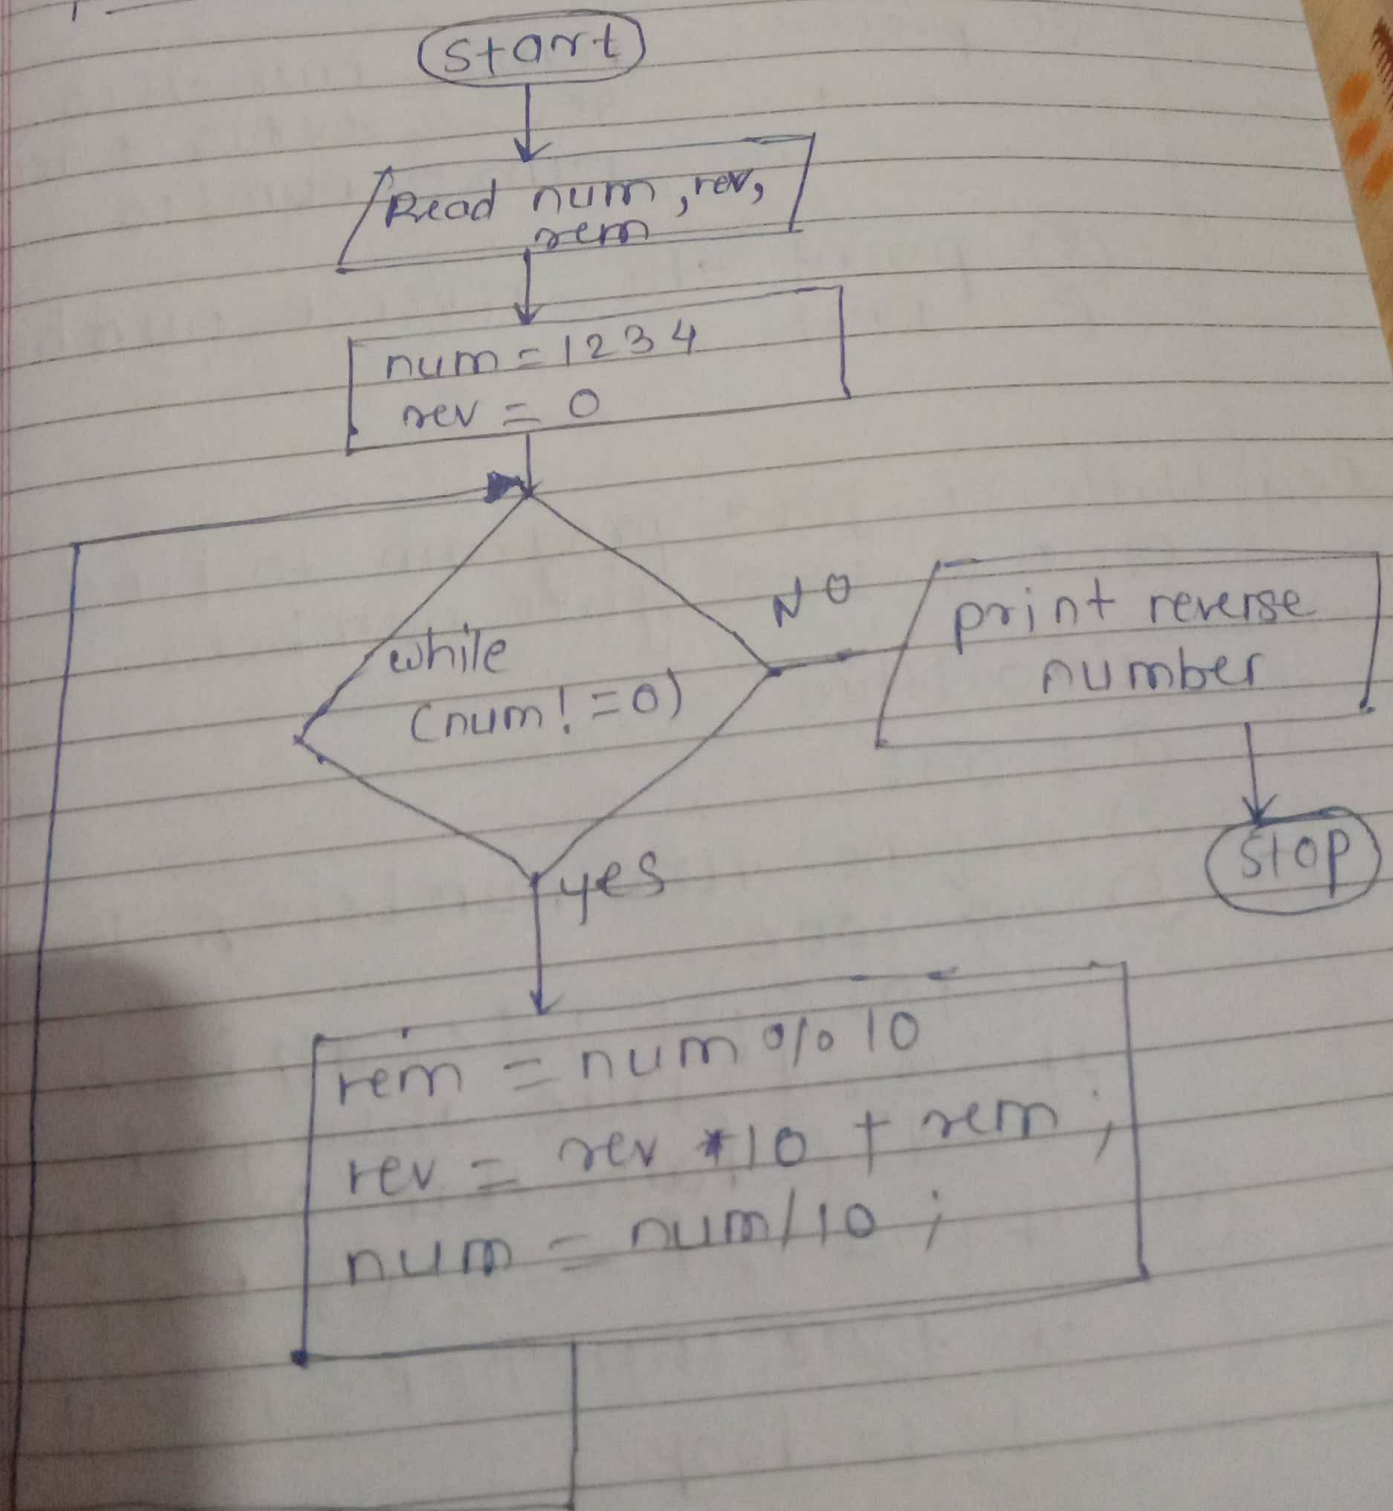 Start
Read num, rev,
rem
num = 1234
rev = 0
while
(num! = 0)
NO
print reverse
number
Stop
yes
rem = num % 10
rev = rev * 10 + rem ;
num = num/10 ;